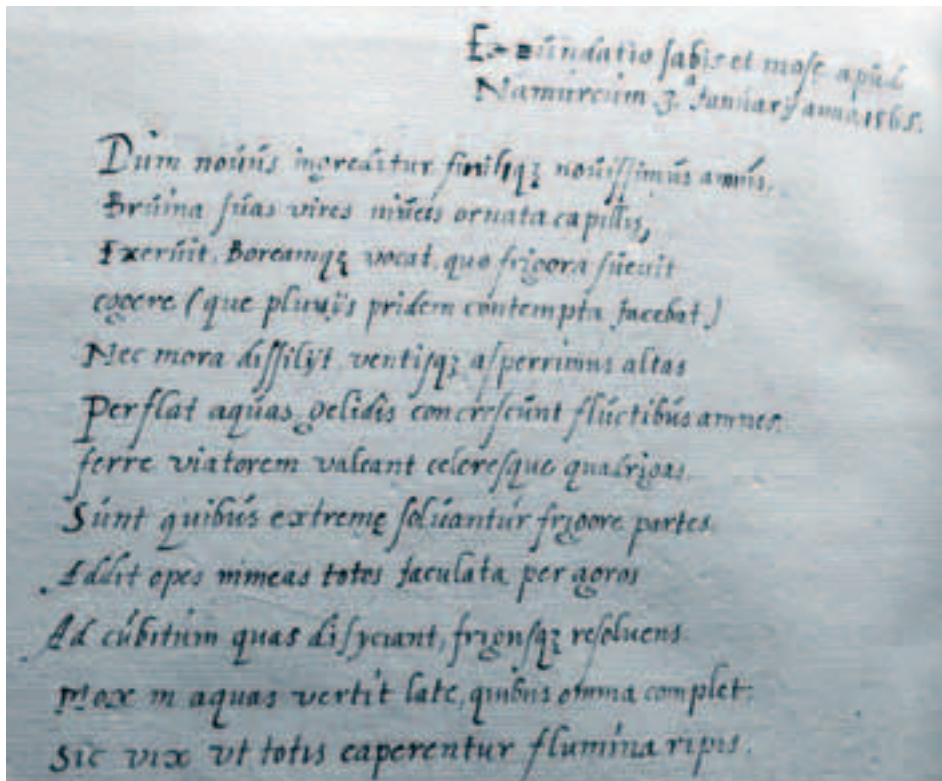 Exundatio sabis et mosę apud
Namurcum 3.ª Januarÿ anno 1565.
Dum novus ingreditur finitqꝫ novissimus annus,
Bruma suas vires niveis ornata capillis,
Exeruit, Boreamqꝫ vocat, quo frigora suevit
cogere (que pluviis pridem contempta jacebat)
Nec mora dissilÿt, ventisqꝫ asperrimus altas
Perflat aquas, gelidis concrescunt fluctibus amnes.
ferre viatorem valeant celeresque quadrigas.
Sunt quibus extremę solvantur frigore partes.
Addit opes nimeas totos jaculata per agros
Ad cubitum quas disyciant, frigusqꝫ resolvens.
Mox in aquas vertit late, quibus omnia complet:
Sic vix vt totis caperentur flumina ripis.